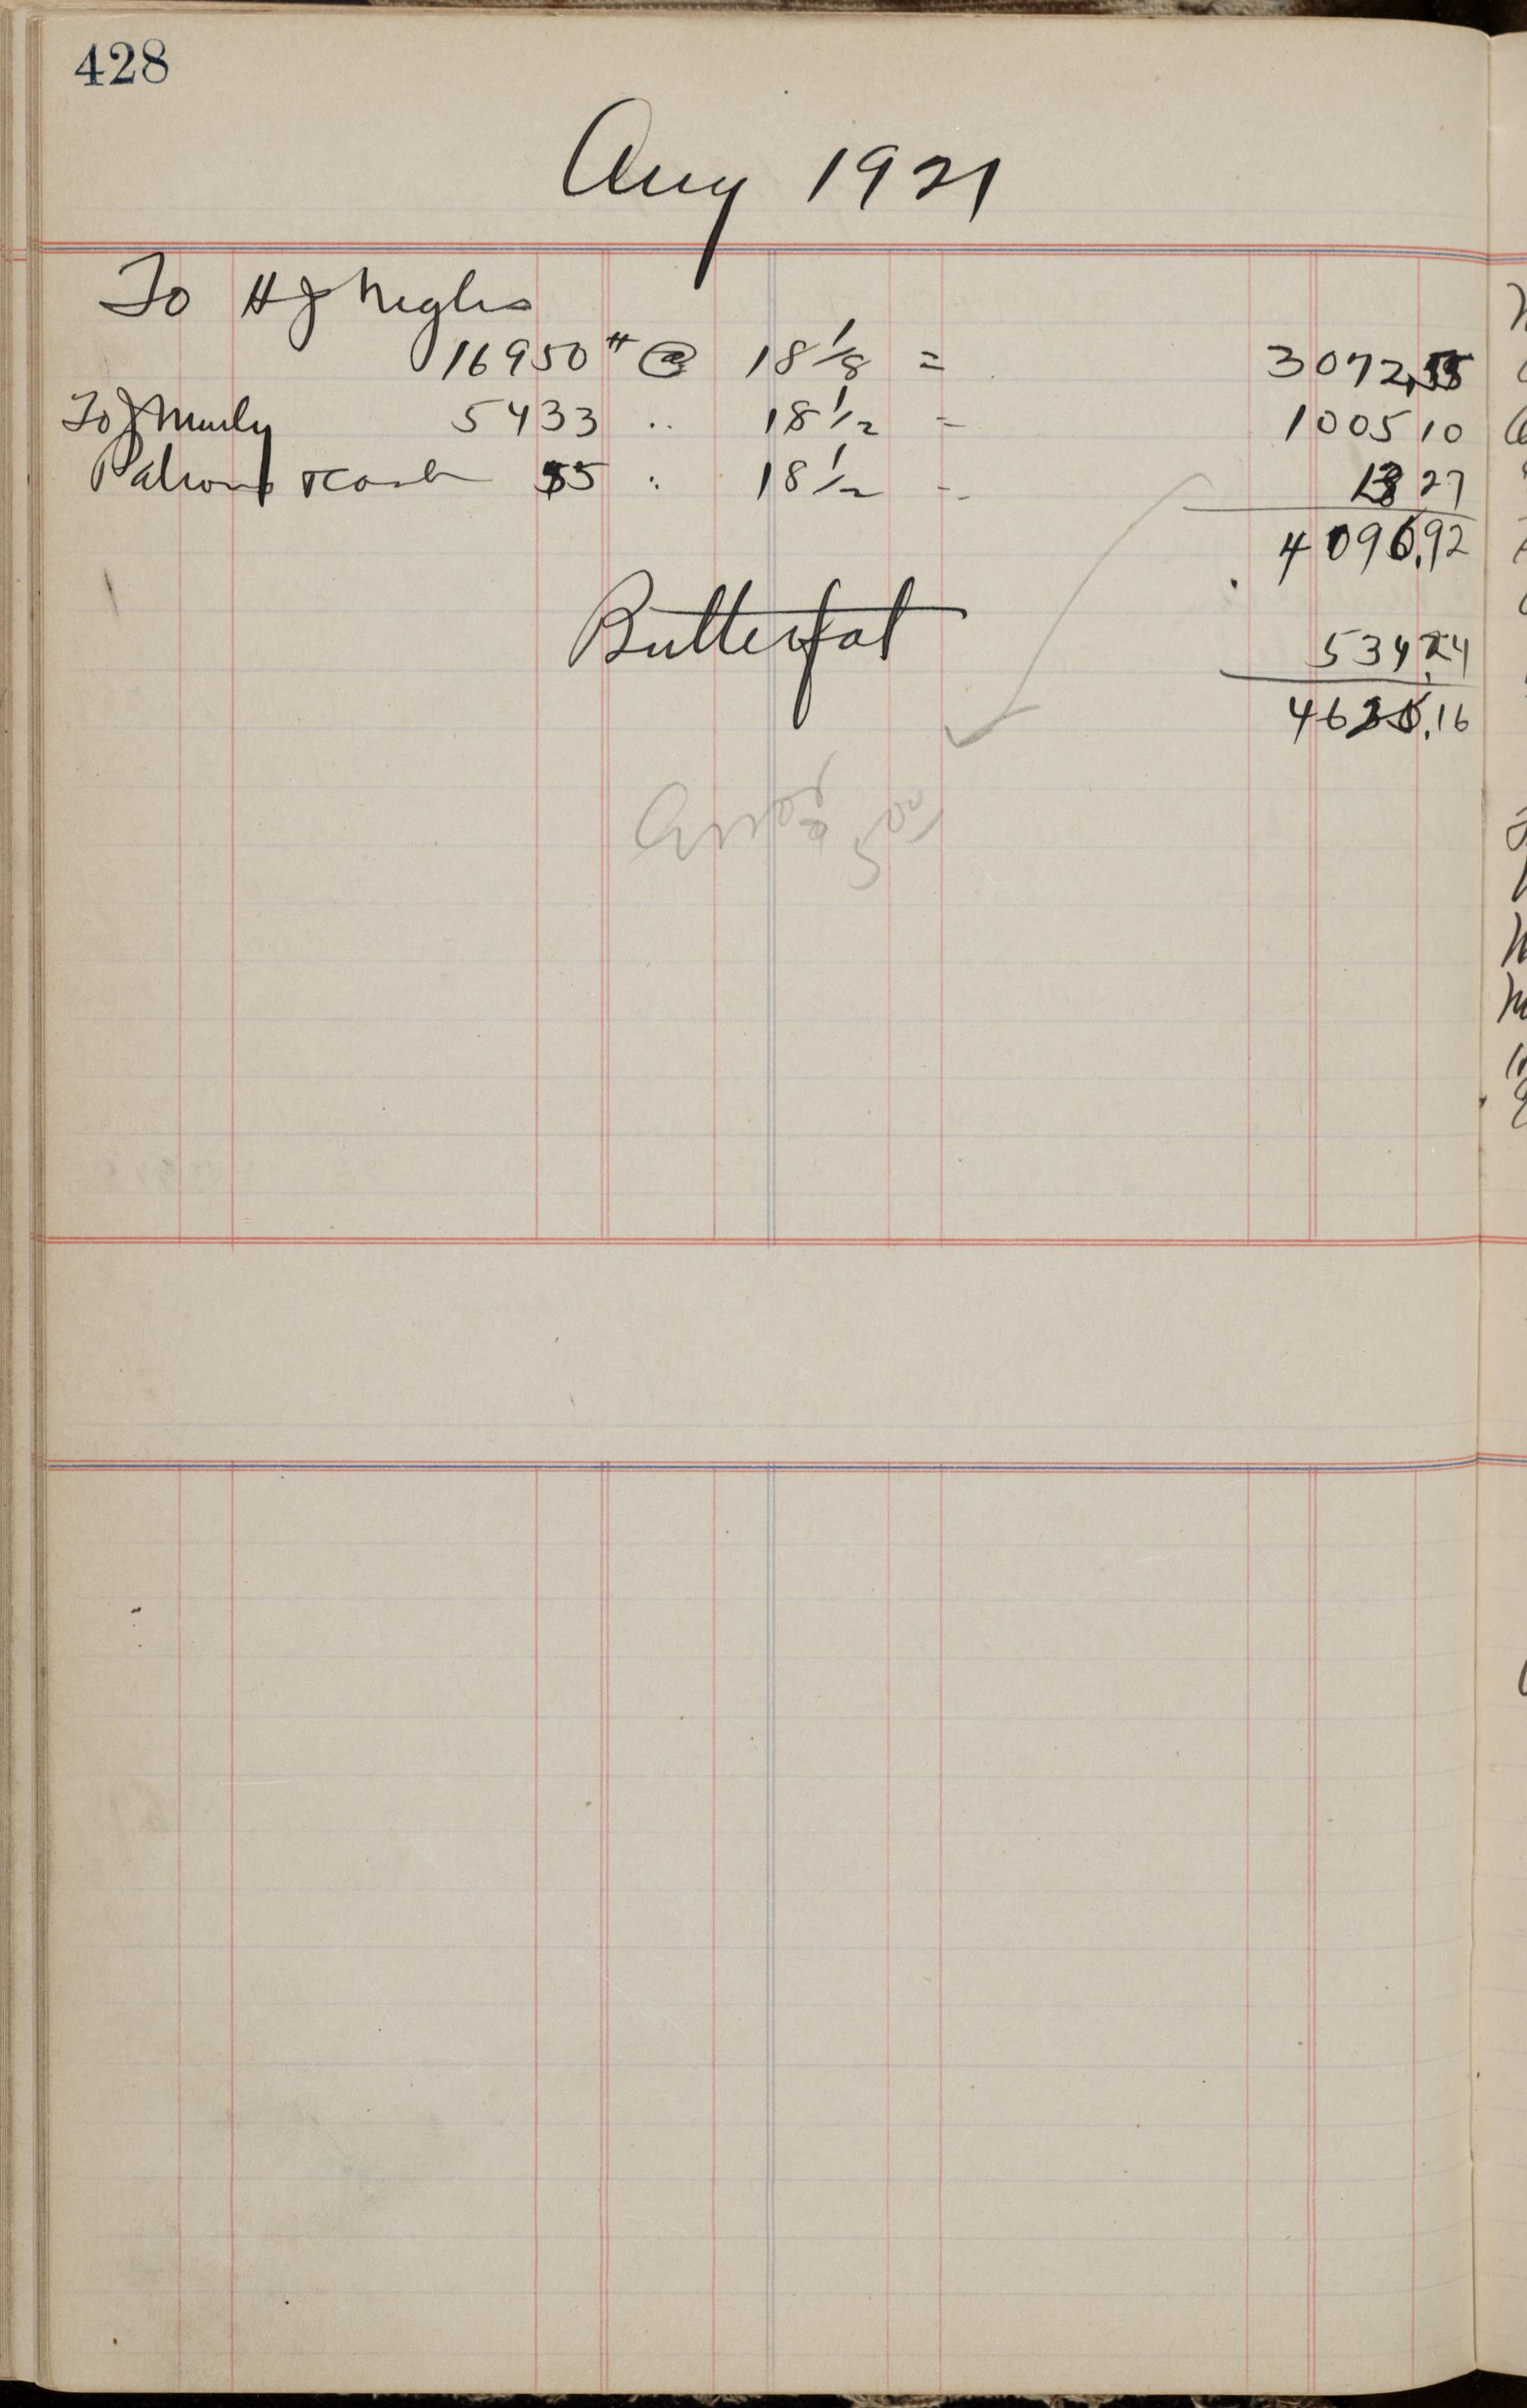 428
Aug 1921
To H J Negles
16950 # @ 18 1/8 = 3072,55
To J Murly 5433 .. 18 1/2 - 1005 10
Patrons & Cash 55 : 18 1/2 - 27
4096.92
Butterfat
534.24
46 .16
Error
5 00